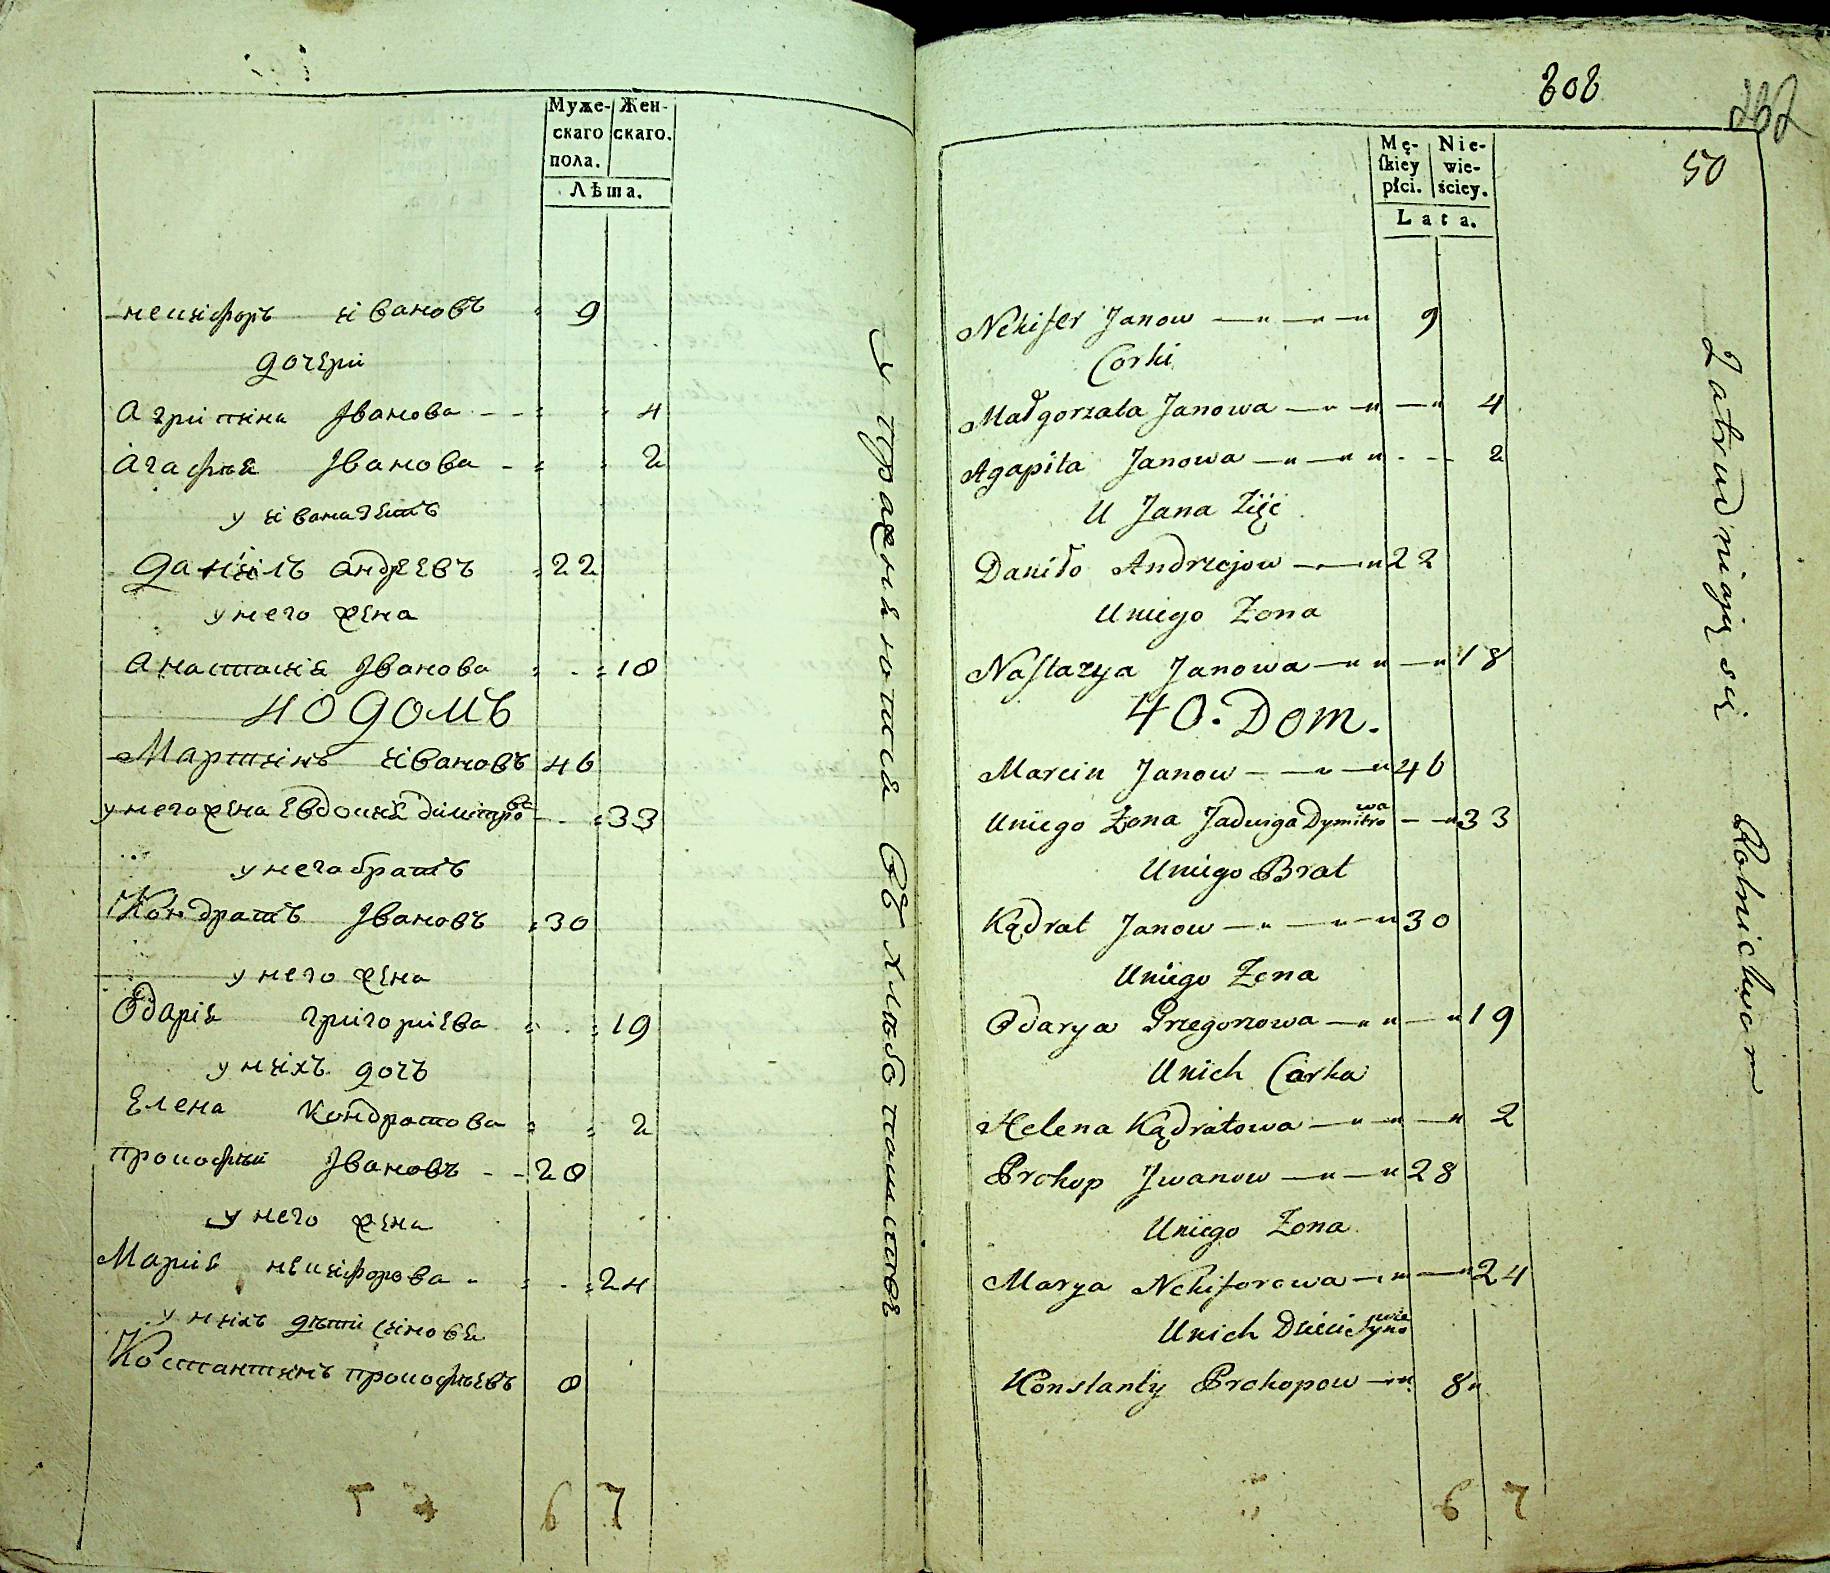 Муже- Жен-
скаго скаго.
пола.
Лѣта.
некифоръ івановъ 9
дочери
Агрипина Іванова 4
Агафия Іванова 2
у івана зять
даниілъ андреевъ 22
у него жена
Анастасия Іванова 18
40 домъ
Мартинъ івановъ 46
у него жена Евдокия димитрова 33
у него братъ
Кондратъ Івановъ 30
у него жена
Одария григориева 19
у нихъ дочь
Елена Кондратова 2
прокофий Івановъ 28
у него жена
Мария некифорова 24
у нихъ дѣти синовя
Костантинъ прокофьевъ 8
6 7
упражняются въ хлѣбопашествѣ
808
262
50
Mę- Nie-
skiey wie-
płci. ściey.
Lata.
Nekifer Janow 9
Corki
Małgorzata Janowa 4
Agapita Janowa 2
U Jana Zięć
Daniło Andrzejow 22
Uniego Zona
Nastazya Janowa 18
40. Dom.
Marcin Janow 46
Uniego Zona Jadwiga Dymitrowa 33
Uniego Brat
Kądrat Janow 30
Uniego Zona
Odarya Grzegorzowa 19
Unich Carka
Helena Kądratowa 2
Prokop Jwanow 28
Uniego Zona
Marya Nekiforowa 24
Unich Dzieci Synowie
Konstanty Prokopow 8
6 7
Zatrudniają się Rolnictwem